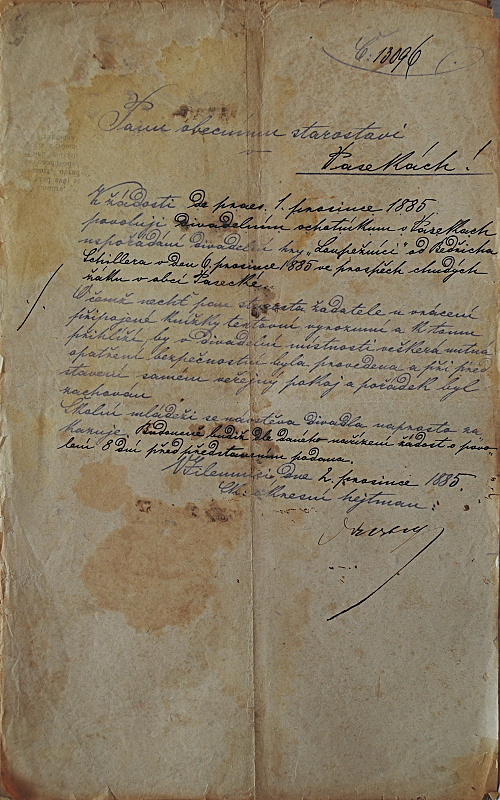 Č. 13096
Panu obecnímu starostovi
v
Pasekách!
K žádosti de praes. 1. prosince 1885
povoluji Divadelním ochotníkům v Pasekách
uspořádání divadelní hry „Loupežníci" od Bedřicha
Schillera v den 6. prosince 1885 ve prospěch chudých
žáků v obci Pasecké.
O čemž nechť pan starosta žadatele u vrácení
připojené knížky textové vyrozumí a k tomu
přihlíží, by v Divadelní místnosti veškerá nutná
opatření bezpečnostní byla provedena a při před
stavení samém veřejný pokoj a pořádek byl
zachován.
Školní mládeži se návštěva Divadla naprosto za
kazuje. Budoucně budiž dle daného nařízení žádost o povo
lení 8 dní před představením podána.
V Jilemnici, dne 2. prosince 1885.
C.k. okresní hejtman: